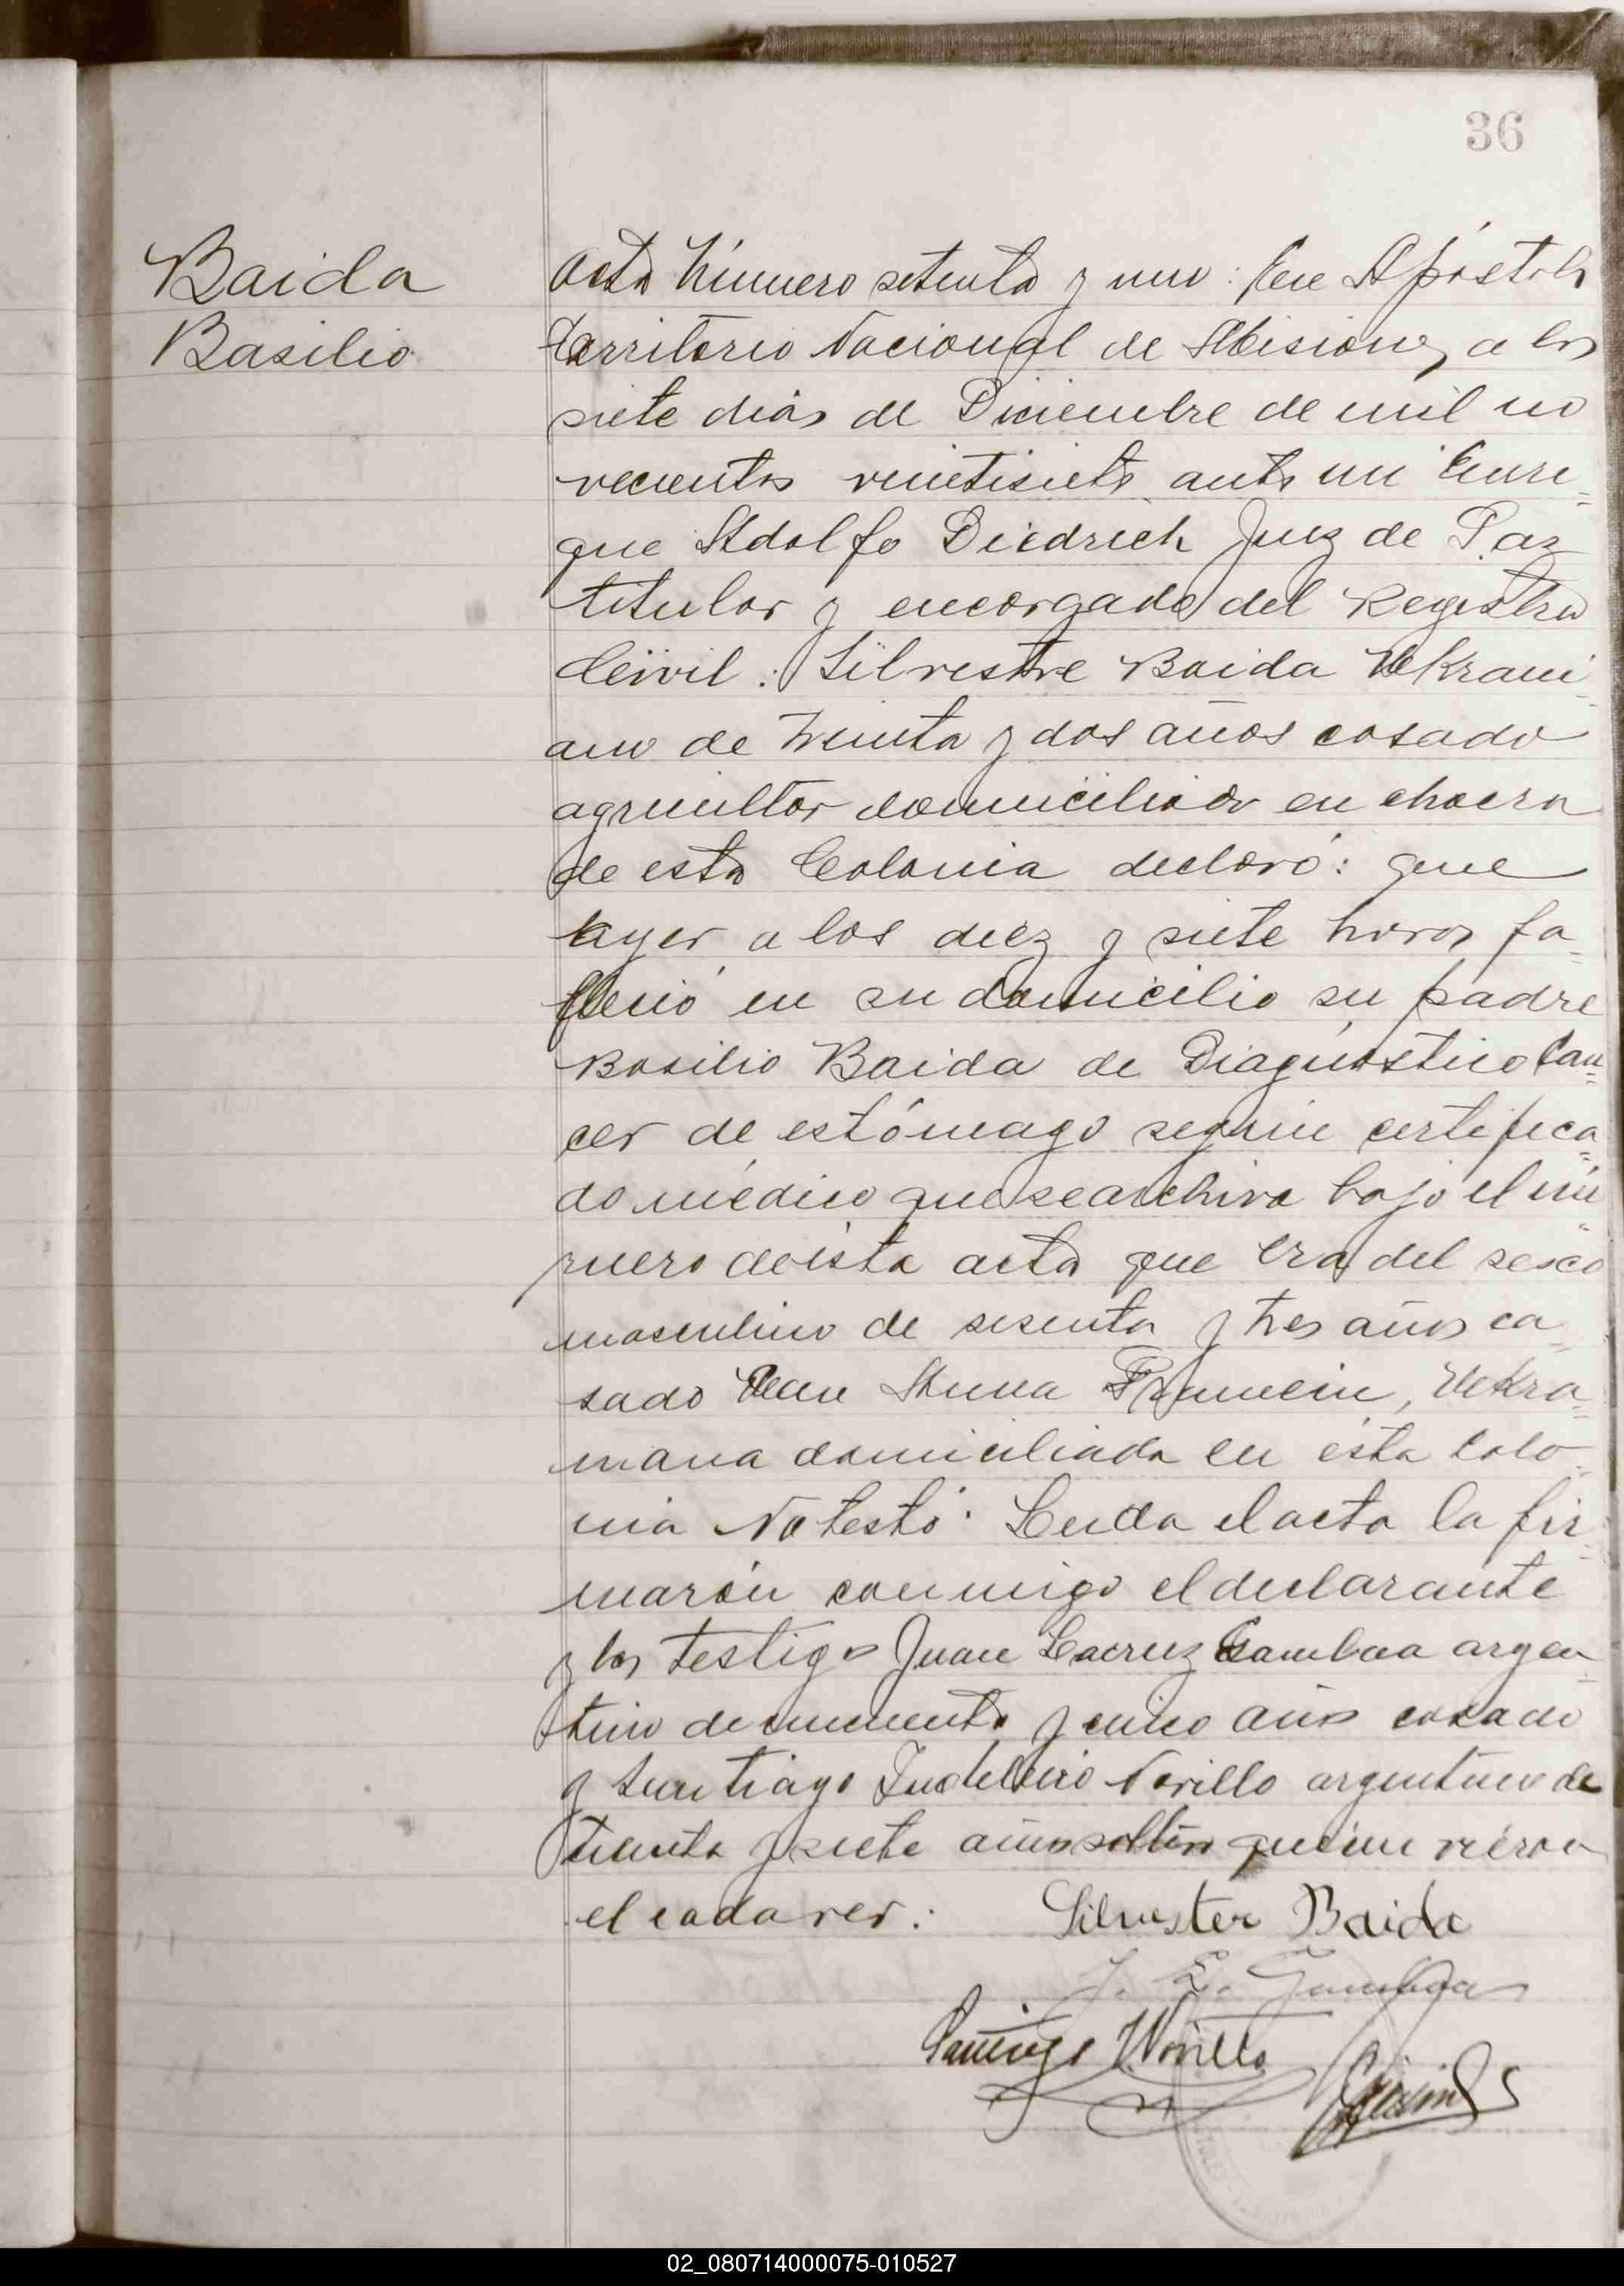 36
Baida
Basilio
Acta Número setenta y uno: En Apóstoles
Territorio Nacional de Misiones, a los
siete dias de Diciembre de mil no
vecientos veintisiete ante mi Enri=
que Adolfo Diedrich Juez de Paz
titular y encargado del Registro
Civil: Silvestre Baida Ukrani
ano de treinta y dos años casado
agricultor domiciliado en chacra
de esta Colonia declaró: que
ayer a las diez y siete horas fa=
lleció en su domicilio su padre
Basilio Baida de Diagnóstico Can=
cer de estómago según certifica=
do médico que se archiva bajo el nú
mero de esta acta que era del sexo
masculino de sesenta y tres años ca=
sado con Anna, Ukra=
niana domiciliada en esta Colo=
nia No testó: Leida el acta la fir=
marón conmigo el declarante
y los testigos Juan Lacruz Gamboa argen
tino de cincuenta y cinco años casado
y Santiago Norillo argentino de
treinta y siete años soltero quienes vieron
el cadaver: Silvester Baida
J. L. Gamboa
Norillo
02_080714000075-010527